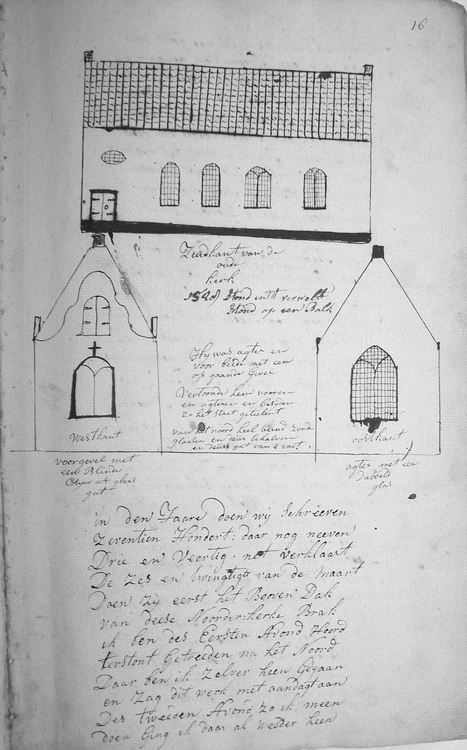 16
Zuidkant van de
oude
kerk
1528 stond in 't verwelf
stond op een Balk
Hy was agter en
voor beide met een
op gaande Gevel
Vertoonde hem vooren
en agteren en besiden
zo het staat getekent
van het noord heel blend zonde
glaasen en deur behalven
en deurs gat van 4 voet.
westkant
oostkant
voorgevel met
een Blinde
Deur uit glaas
gat
agter met een
Dubbeld
glas
in den Jaare doen wij Schreeven
Zeventien Hondert: daar nog neeven
Drie en Veertig. net verklaart
De Zes en twingtigste van de maart
Doen Zy eerst het Booven Dak
van deese Noorder-kerke Brak
ik ben des Eersten Avond Hoord
terstont Getreeden na het Noord
Daar ben ik Zelver heen Gegaan
en Zag dit werk met aandagt aan
Des tweeden Avond zo ik meen
doen Ging ik daar al weeder heen